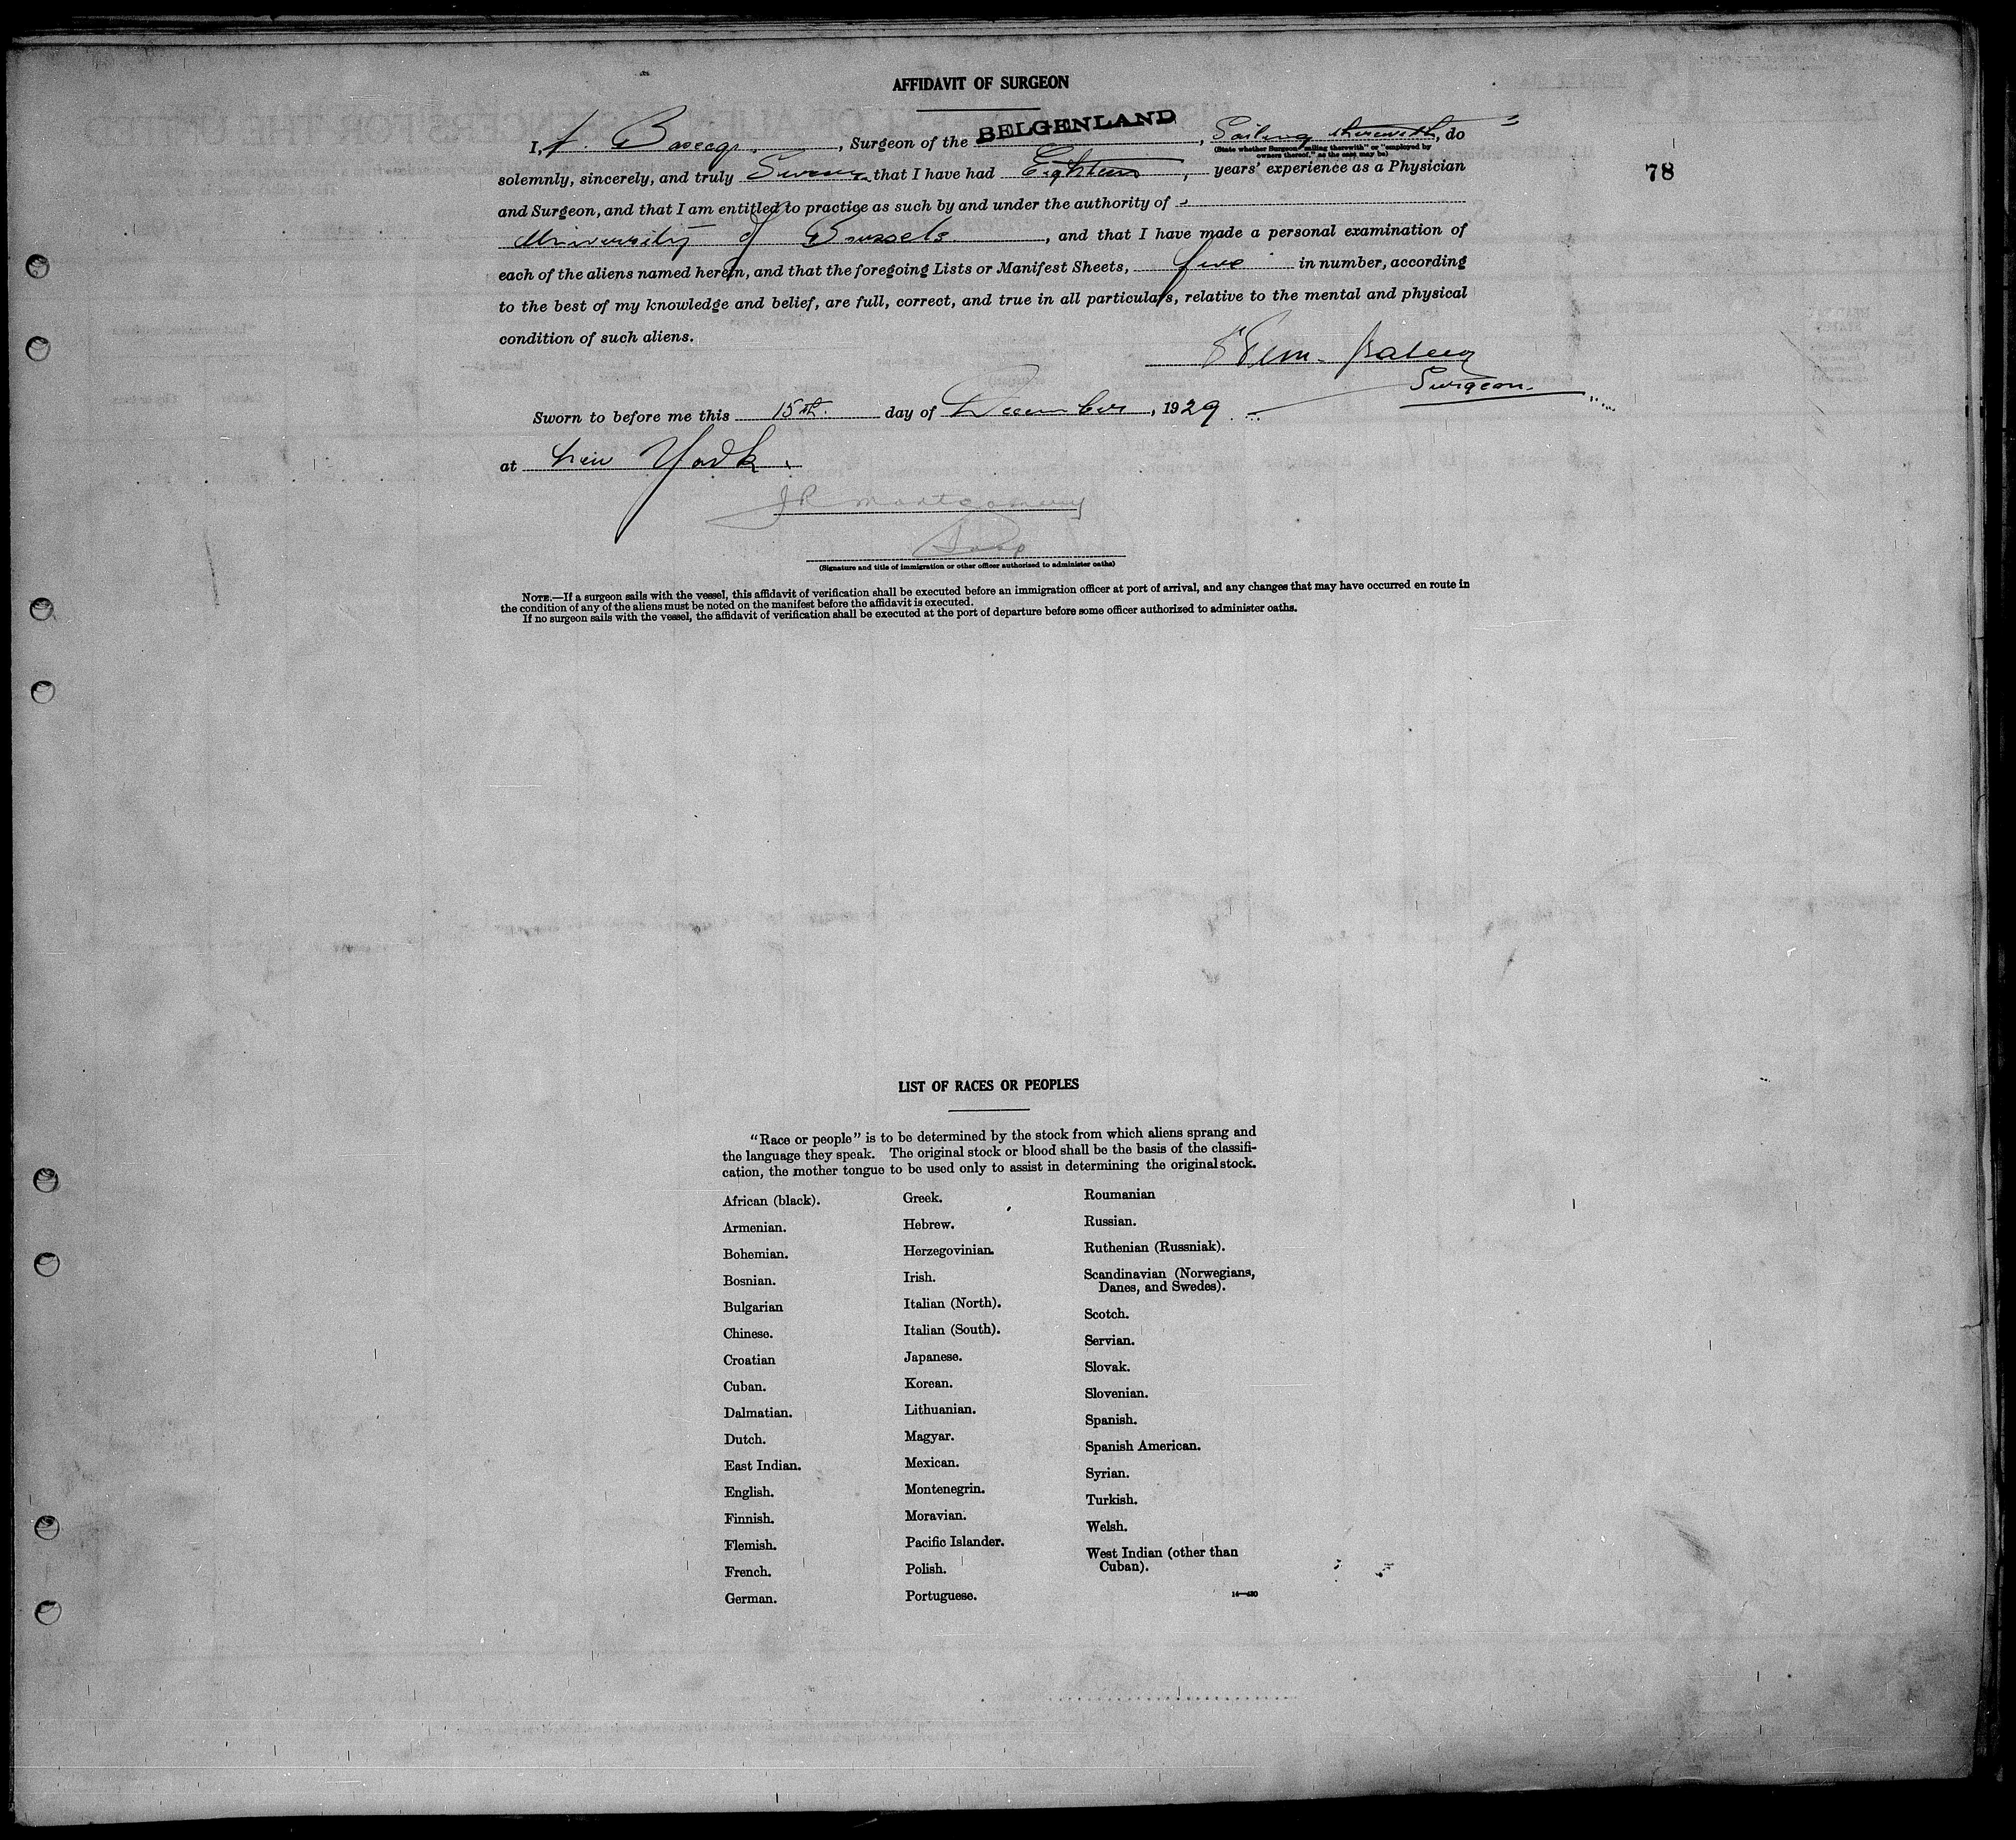 AFFIDAVIT OF SURGEON
I, A. , Surgeon of the BELGENLAND, Sailing therewith, do
(State whether Surgeon "sailing therewith" or "employed by
owners thereof," as the case may be)
78
solemnly, sincerely, and truly Swear that I have had Eighteen, years' experience as a Physician
and Surgeon, and that I am entitled to practice as such by and under the authority of
University of Brussels, and that I have made a personal examination of
each of the aliens named herein, and that the foregoing Lists or Manifest Sheets, five in number, according
to the best of my knowledge and belief, are full, correct, and true in all particulars, relative to the mental and physical
condition of such aliens.
Surgeon.
Sworn to before me this 15th. day of December, 1929
at New York.
JR Montgomery
(Signature and title of immigration or other officer authorized to administer oaths)
NOTE.—If a surgeon sails with the vessel, this affidavit of verification shall be executed before an immigration officer at port of arrival, and any changes that may have occurred en route in
the condition of any of the aliens must be noted on the manifest before the affidavit is executed.
If no surgeon sails with the vessel, the affidavit of verification shall be executed at the port of departure before some officer authorized to administer oaths.
LIST OF RACES OR PEOPLES
"Race or people" is to be determined by the stock from which aliens sprang and
the language they speak. The original stock or blood shall be the basis of the classifi-
cation, the mother tongue to be used only to assist in determining the original stock.
African (black).
Armenian.
Bohemian.
Bosnian.
Bulgarian
Chinese.
Croatian
Cuban.
Dalmatian.
Dutch.
East Indian.
English.
Finnish.
Flemish.
French.
German.
Greek.
Hebrew.
Herzegovinian.
Irish.
Italian (North).
Italian (South).
Japanese.
Korean.
Lithuanian.
Magyar.
Mexican.
Montenegrin.
Moravian.
Pacific Islander.
Polish.
Portuguese.
Roumanian
Russian.
Ruthenian (Russniak).
Scandinavian (Norwegians,
Danes, and Swedes).
Scotch.
Servian.
Slovak.
Slovenian.
Spanish.
Spanish American.
Syrian.
Turkish.
Welsh.
West Indian (other than
Cuban).
14—430